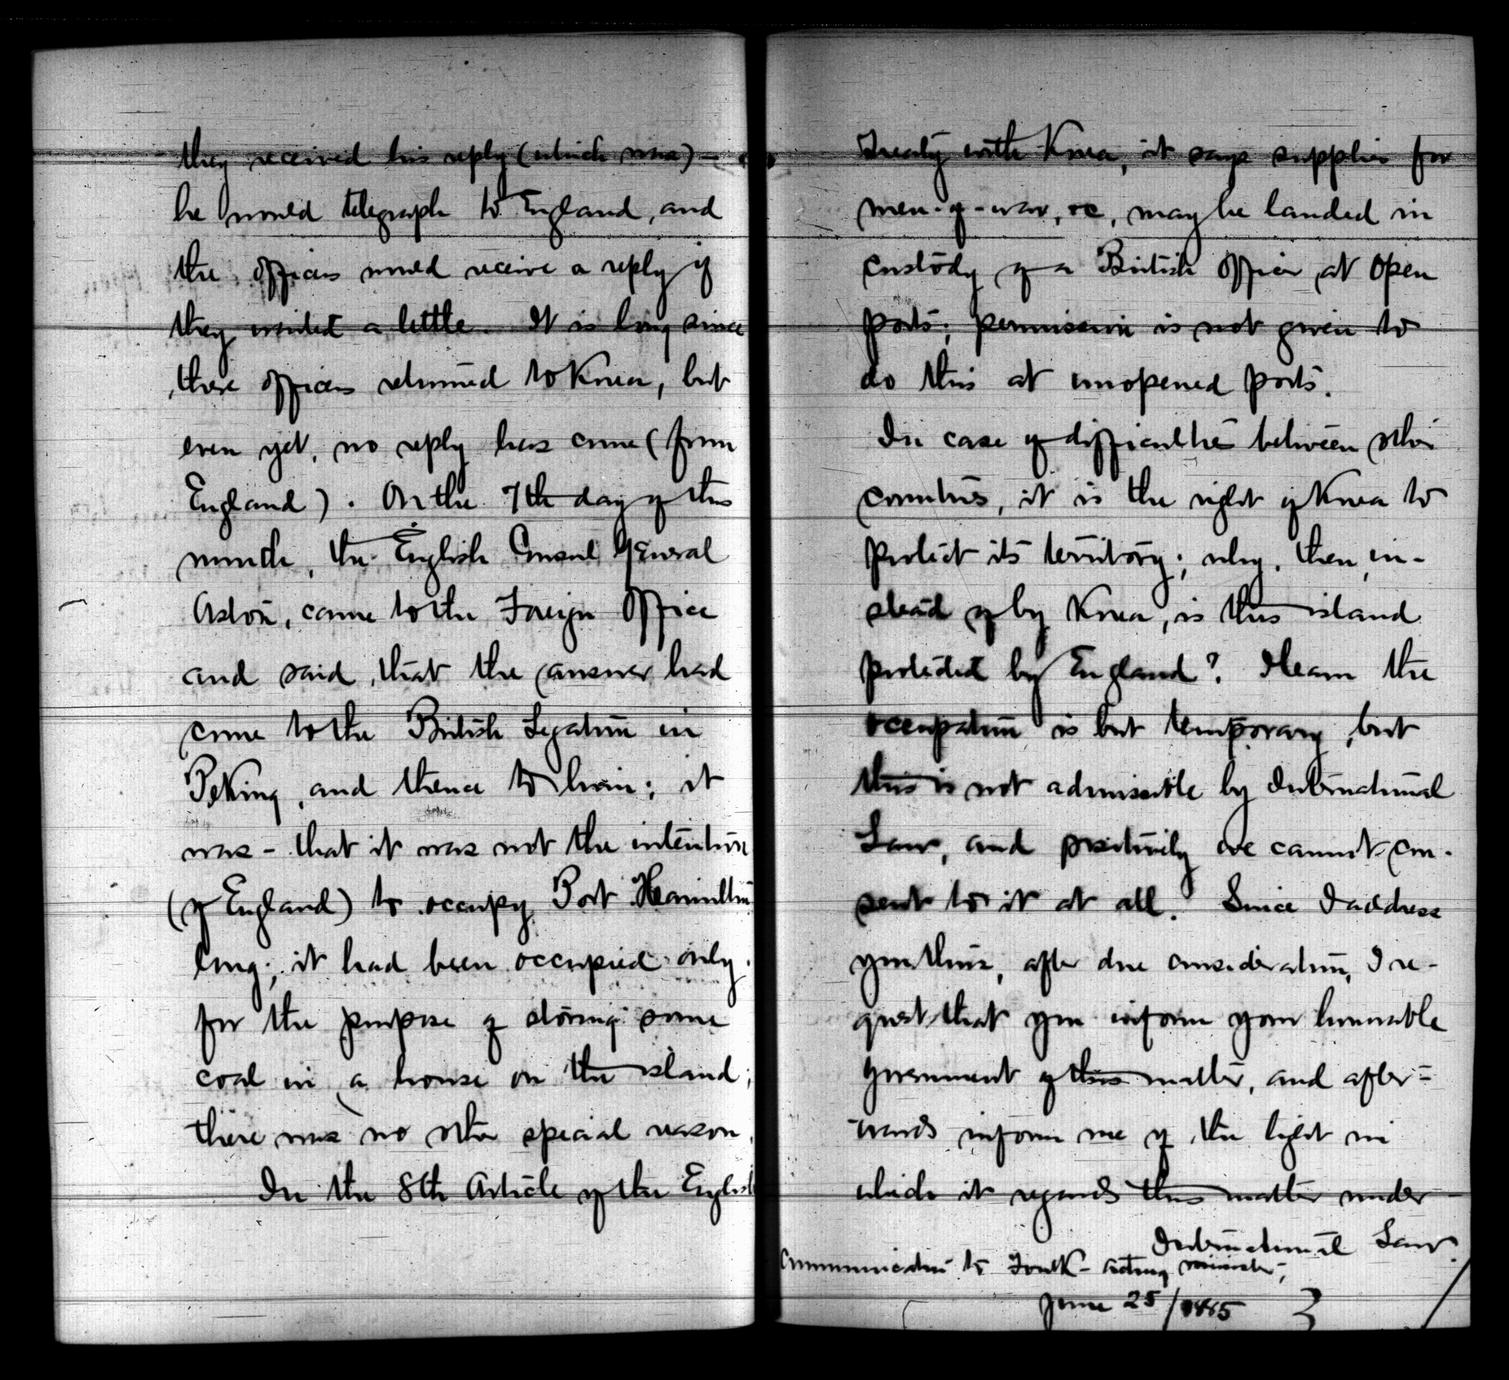 they received his reply (which was) —
he would telegraph to England, and
the officers would receive a reply if
they waited a little. It is long since
these officers returned to Korea, but
even yet, no reply has come (from
England). On the 7th day of this
month, the English Consul General
Aston, came to the Foreign Office
and said, that the answer had
come to the British Legation in
Peking, and thence to him; it
was - that it was not the intention
(of England) to occupy Port Hamilton
long; it had been occupied only
for the purpose of storing some
coal in a house on the island;
there was no other special reason.
In the 8th Article of the English
Treaty with Korea, it says supplies for
men-of-war, &c, may be landed in
custody of a British officer at open
ports; permission is not given to
do this at unopened ports.
In case of difficulties between other
countries, it is the right of Korea to
protect its territory; why, then, in-
stead of by Korea, is this island
protected by England? I learn the
occupation is but temporary, but
this is not admissible by International
Law, and positively we cannot con-
sent to it at all. Since I address
you thus, after due consideration, I re-
quest that you inform your honorable
government of this matter, and after-
wards inform me of the light in
which it regards this matter under
International Law.
Communication to Foulk - acting minister,
June 25/1885 3